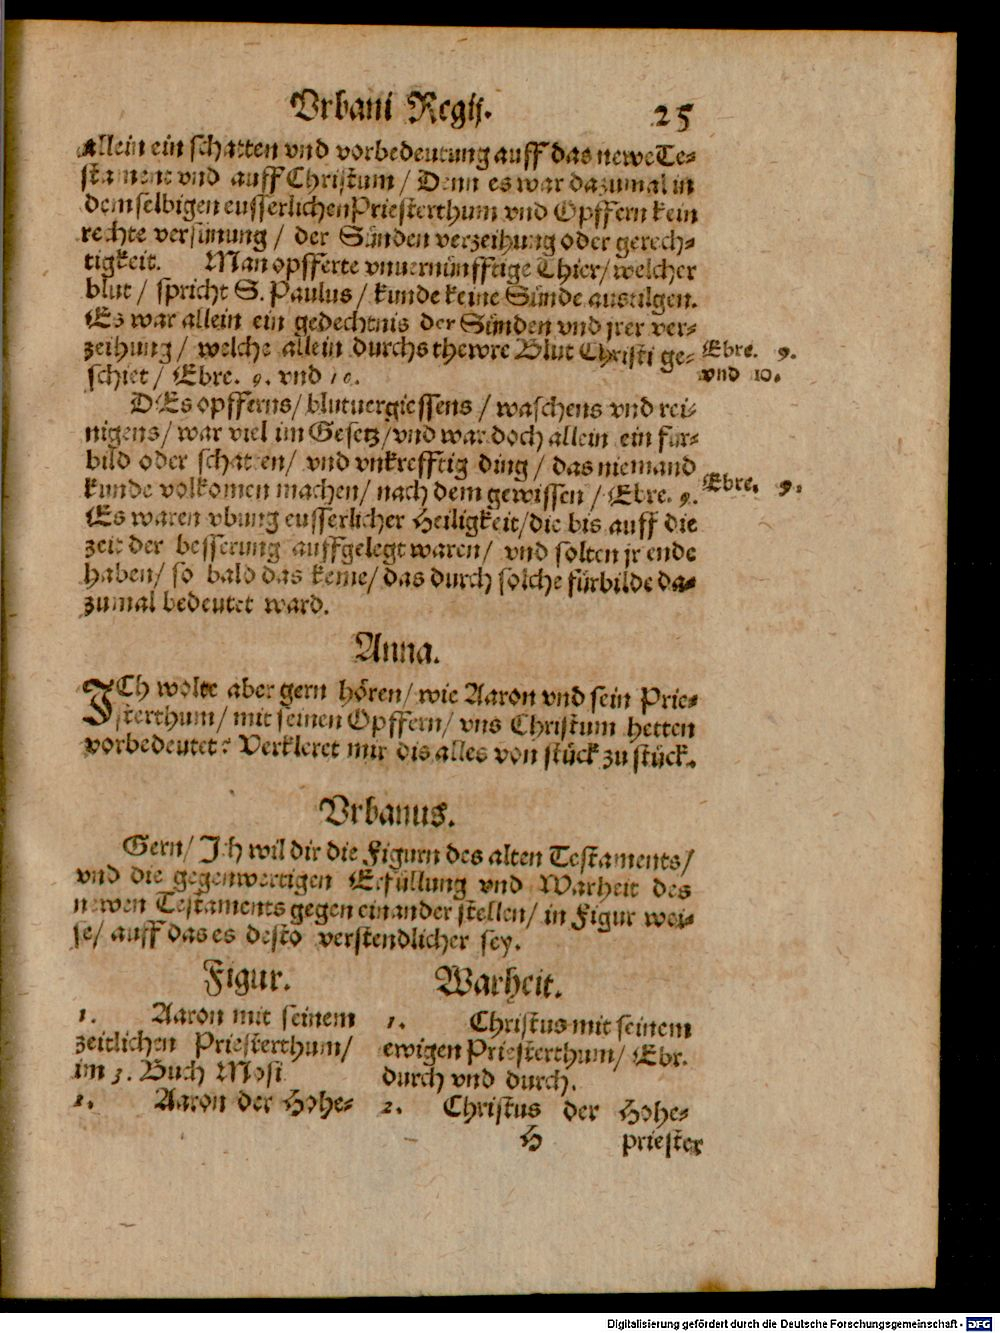 Vrbani Regij. 25
allein ein schatten vnd vorbedeutung auff das newe Te-
stament vnd auff Christum / Denn es war dazumal in
demselbigen eusserlichen Priesterthum vnd Opffern kein
rechte versünung / der Sünden verzeihung oder gerech-
tigkeit. Man opfferte vnuernünfftige Thier / welcher
blut / spricht S. Paulus / kunde keine Sünde austilgen.
Es war allein ein gedechtnis der Sünden vnd jrer ver-
zeihung / welche allein durchs thewre Blut Christi ge-
schiet / Ebre. 9. vnd 10.
Ebre. 9.
vnd 10.
DEs opfferns / blutuergiessens / waschens vnd rei-
nigens / war viel im Gesetz / vnd war doch allein ein für-
bild oder schatten / vnd vnkrefftig ding / das niemand
kunde volkomen machen / nach dem gewissen / Ebre. 9.
Ebre. 9.
Es waren vbung eusserlicher Heiligkeit / die bis auff die
zeit der besserung auffgelegt waren / vnd solten jr ende
haben / so bald das keme / das durch solche fürbilde da-
zumal bedeutet ward.
Anna.
ICh wolte aber gern hören / wie Aaron vnd sein Prie-
sterthum / mit seinen Opffern / vns Christum hetten
vorbedeutet? Verkleret mir dis alles von stück zu stück.
Vrbanus.
Gern / Ich wil dir die Figurn des alten Testaments /
vnd die gegenwertigen Erfüllung vnd Warheit des
newen Testaments gegen einander stellen / in Figur wei-
se / auff das es desto verstendlicher sey.
Figur.
1. Aaron mit seinem
zeitlichen Priesterthum /
im 3. Buch Mosi
2. Aaron der Hohe-
Warheit.
1. Christus mit seinem
ewigen Priesterthum / Ebr.
durch vnd durch.
2. Christus der Hohe-
H priester
Digitalisierung gefördert durch die Deutsche Forschungsgemeinschaft - DFG